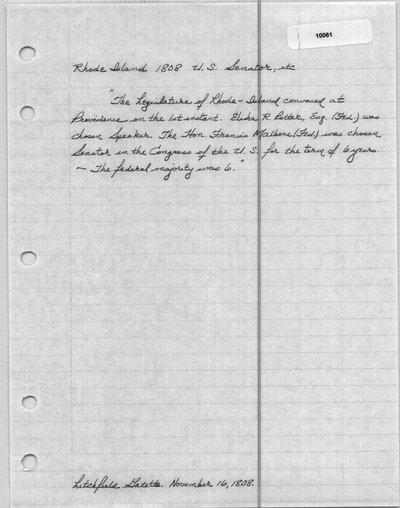 10061
Rhode Island 1808 U.S. Senator, etc
"The Legislature of Rhode-Island convened at
Providence on the 1st instant. Elisha R Potter, Esq. (Fed.) was
chosen Speaker. The Hon. Francis Malbone (Fed.) was chosen
Senator in the Congress of the U.S. for the term of 6 years.
— The federal majority was 6."
Litchfield Gazette. November 16, 1808.